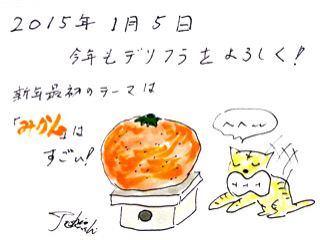 2015年1月5日
今年もデリフラをよろしく!
新年最初のテーマは
「みかん」は
すごい!